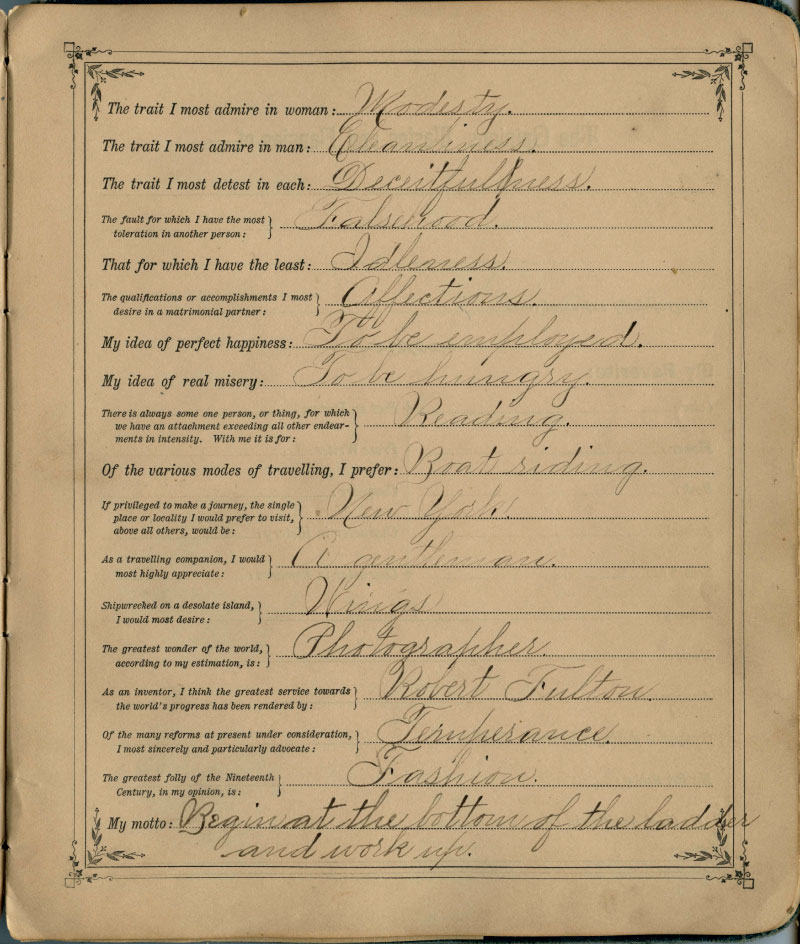 The trait I most admire in woman: Modesty.
The trait I most admire in man: Cleanliness.
The trait I most detest in each: Deceitfullness.
The fault for which I have the most
toleration in another person: } Falsehood.
That for which I have the least: Idleness.
The qualifications or accomplishments I most
desire in a matrimonial partner: } Affections.
My idea of perfect happiness: To be employed.
My idea of real misery: To be hungry.
There is always some one person, or thing, for which
we have an attachment exceeding all other endear-
ments in intensity. With me it is for: } Reading.
Of the various modes of travelling, I prefer: Boat riding.
If privileged to make a journey, the single
place or locality I would prefer to visit,
above all others, would be: } New York.
As a travelling companion, I would
most highly appreciate: } A gentleman.
Shipwrecked on a desolate island,
I would most desire: } Wings
The greatest wonder of the world,
according to my estimation, is: } Photographer.
As an inventor, I think the greatest service towards
the world's progress has been rendered by: } Robert Fulton.
Of the many reforms at present under consideration,
I most sincerely and particularly advocate: } Temperance.
The greatest folly of the Nineteenth
Century, in my opinion, is: } Fashion.
My motto: Begin at the bottom of the ladder
and work up.